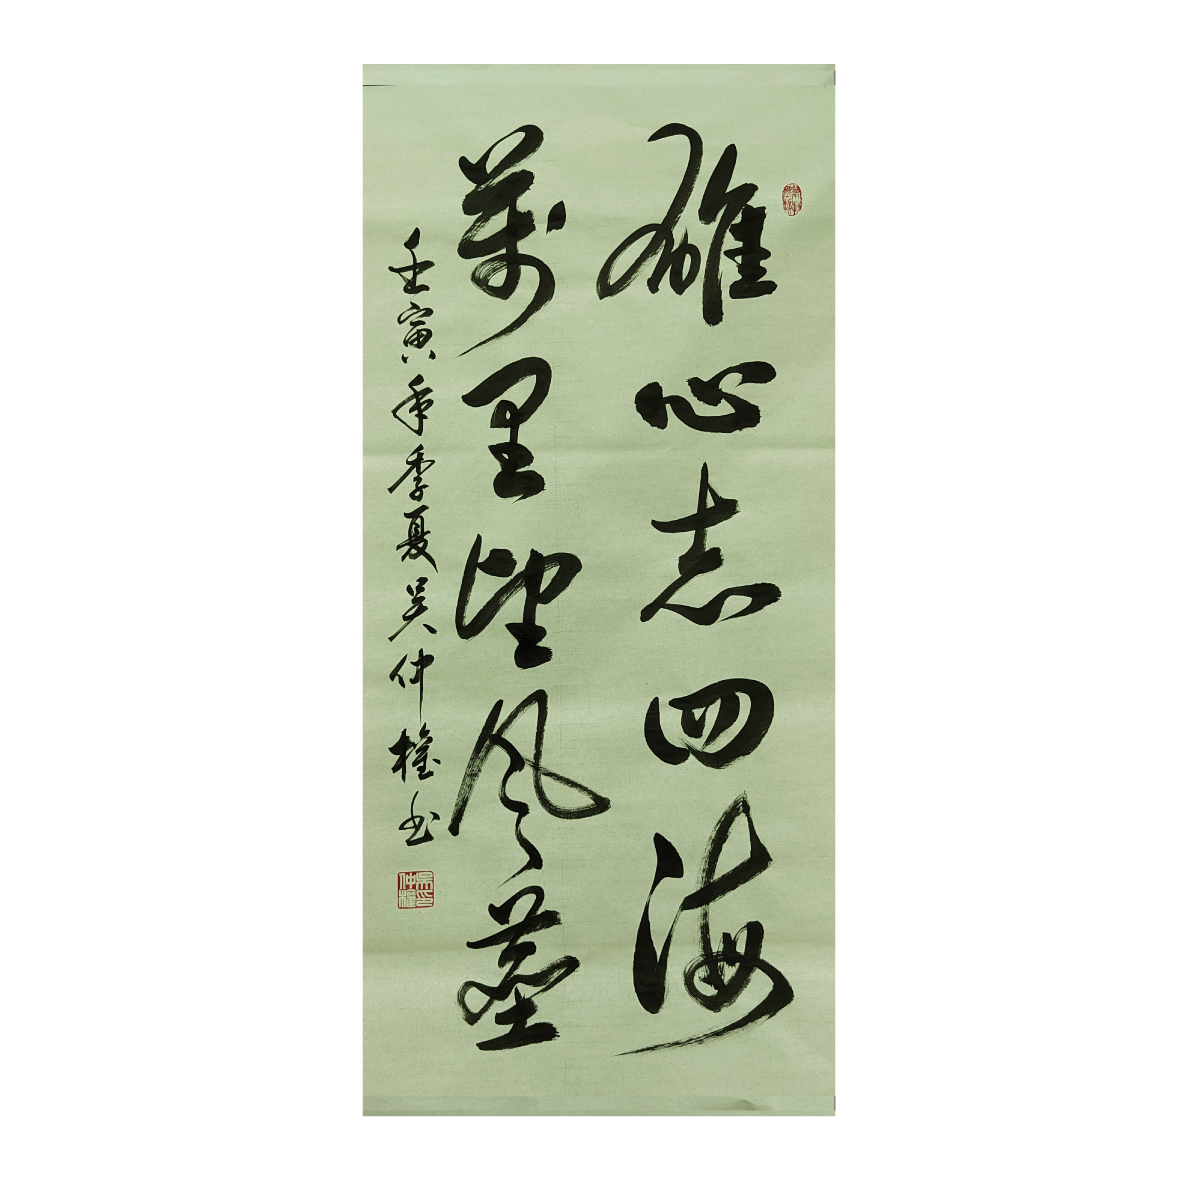 雄心志四海
萬里望风塵
壬寅年季夏吴仲權书
吴印仲權